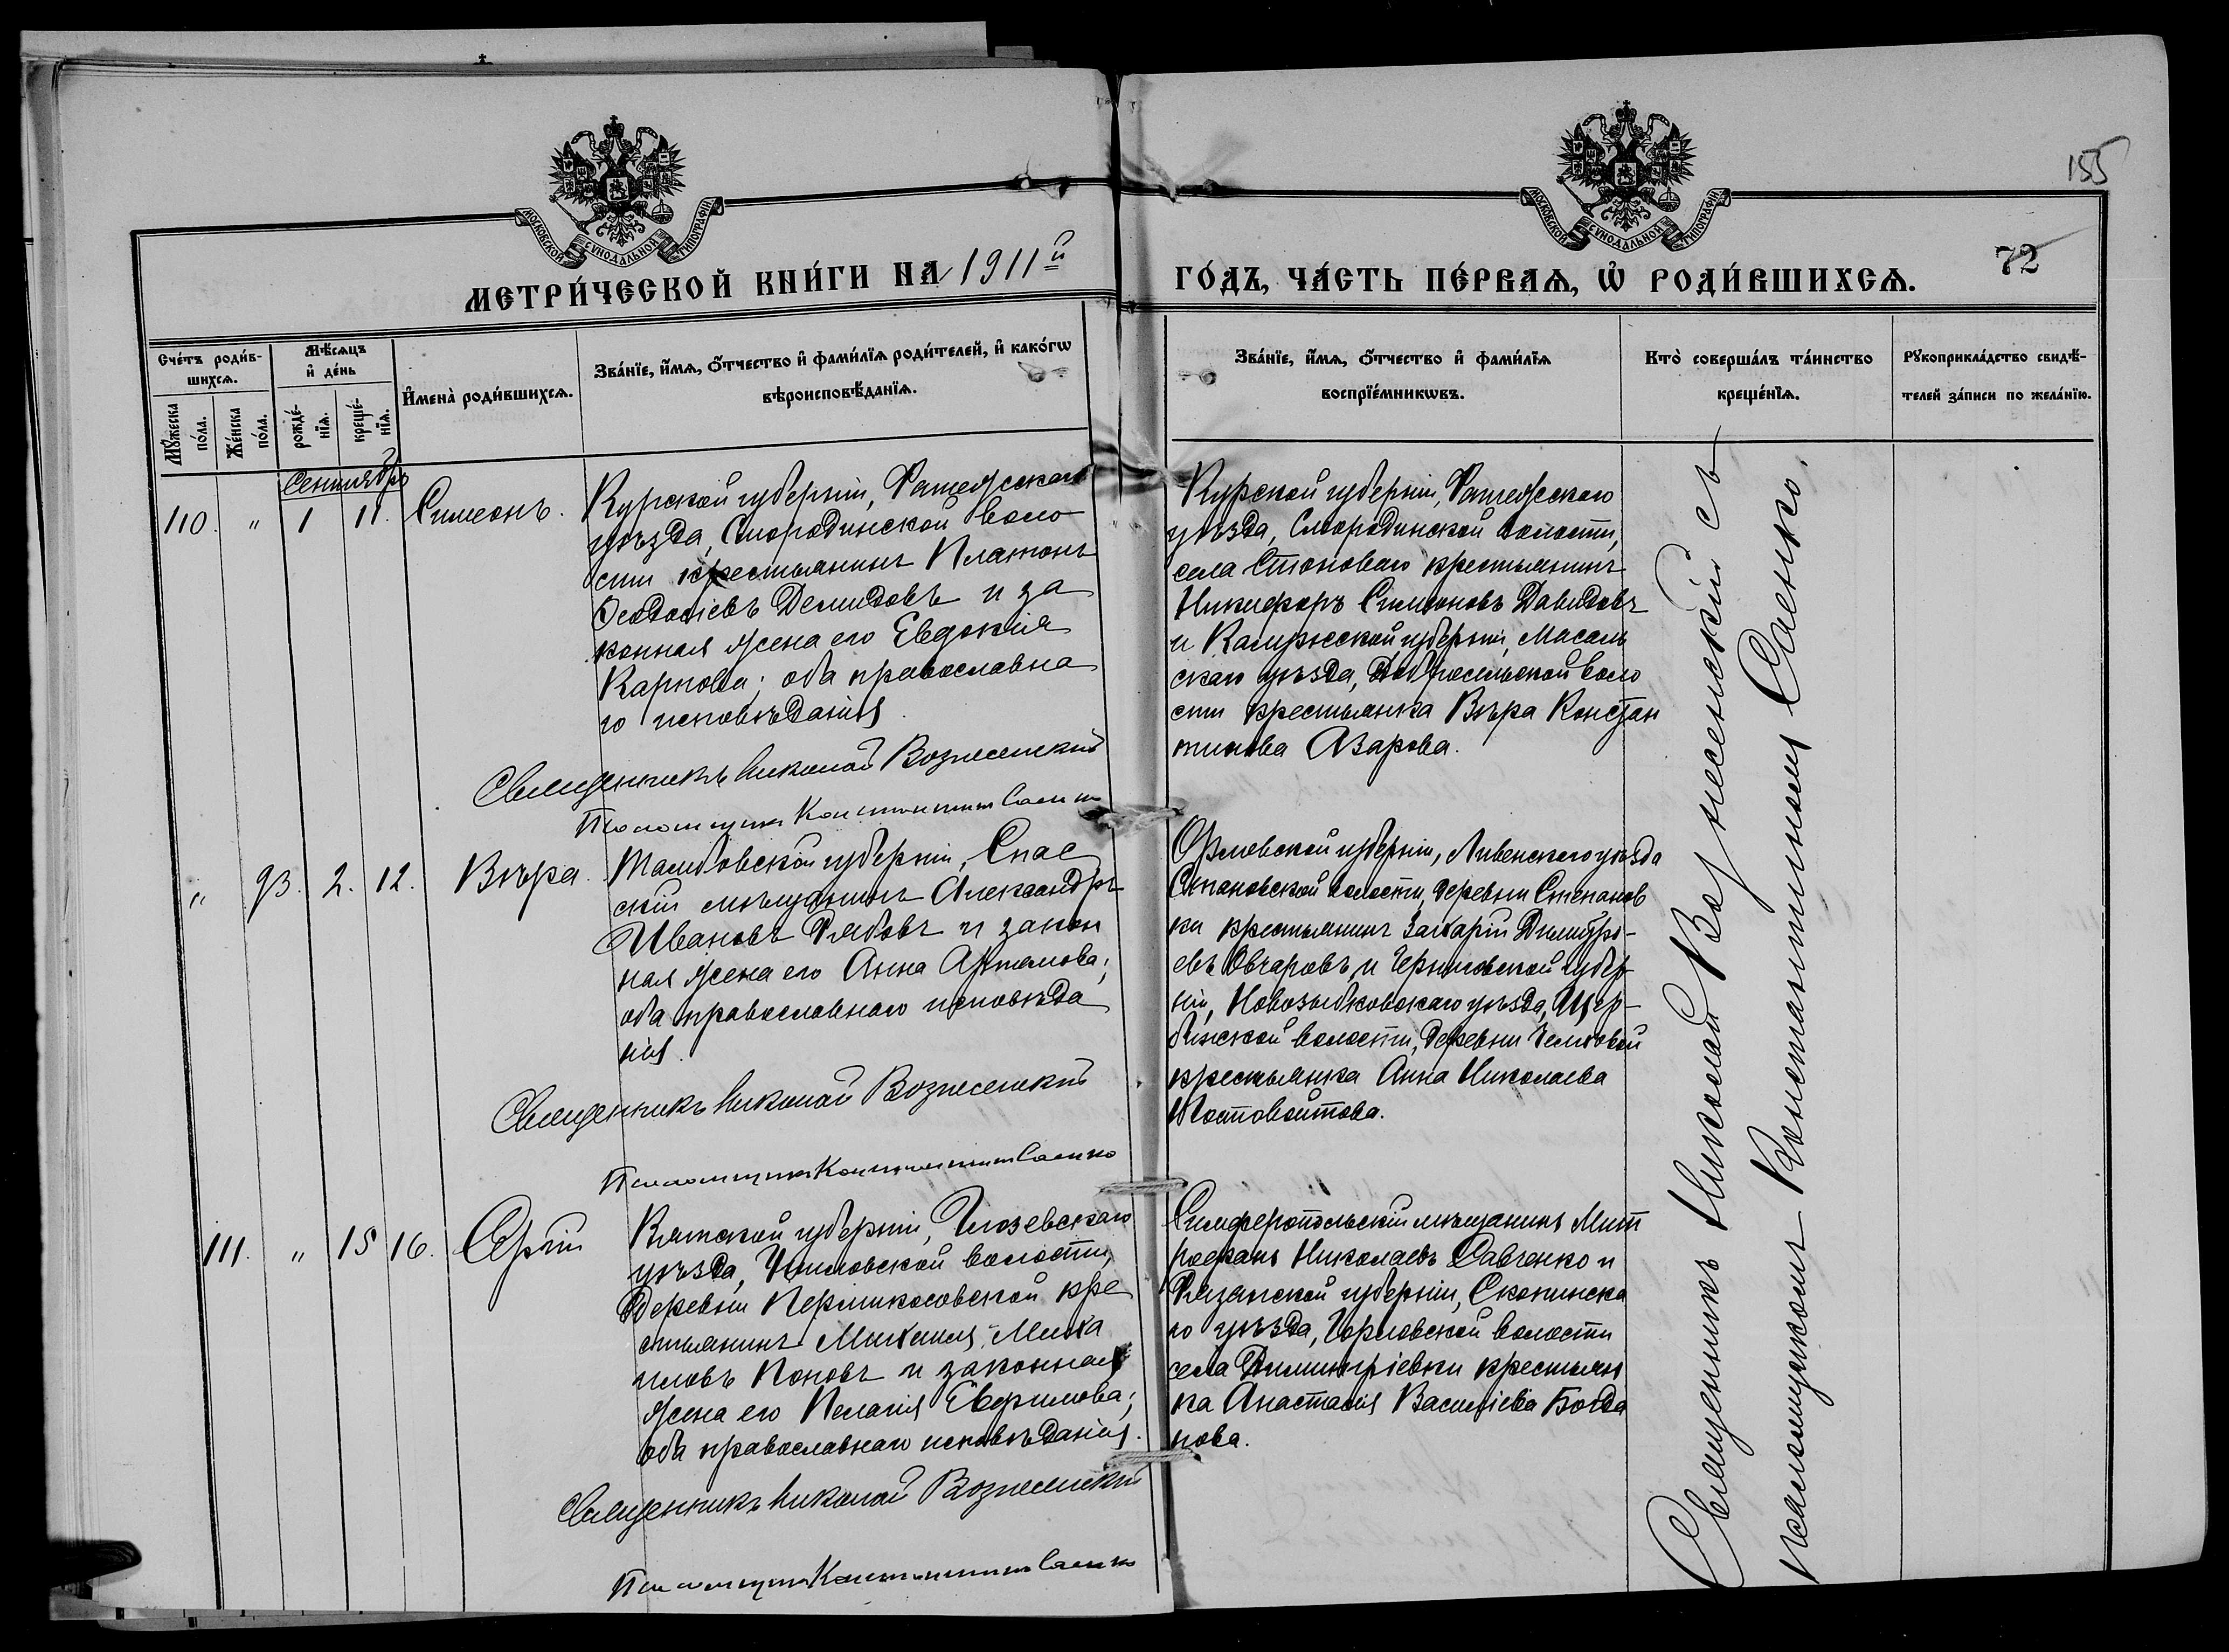 155
72
МОСКОВСКОЙ СѴНОДАЛЬНОЙ ТИПОГРАФІИ
МОСКОВСКОЙ СѴНОДАЛЬНОЙ ТИПОГРАФІИ
МЕТРИ́ЧЕСКОЙ КНИ́ГИ НА 1911й
ГО́ДЪ, ЧА́СТЬ ПЕ́РВАѦ, Ѡ҆ РОДИ́ВШИХСѦ.
Сче́тъ роди́в-
шихсѧ.
Мꙋ́жеска
по́ла.
Же́нска
по́ла.
Мѣ́сѧцъ
и҆ де́нь
рожде́-
нїѧ.
креще́-
нїѧ.
И҆мена̀ роди́вшихсѧ.
Зва́нїе, и҆́мѧ, ѻ҆́тчество и҆ фами́лїѧ роди́телей, и҆ како́гѡ
вѣроисповѣ́данїѧ.
Зва́нїе, и҆́мѧ, ѻ҆́тчество и҆ фами́лїѧ
воспрїе́мникѡвъ.
Кто̀ соверша́лъ та́инство
креще́нїѧ.
Рꙋкоприкла́дство свидѣ́-
телей за́писи по жела́нїю.
Сентябрь
110. " 1 11. Симеонъ.
Курской губерніи, Фатежскаго
уѣзда, Смородинской воло
сти крестьянинъ Платонъ
Ѳеодосіевъ Демидовъ и за
конная жена его Евдокія
Карпова; оба православна
го исповѣданія.
Священникъ Николай Вознесенскій
Псаломщикъ Константинъ Саенко
Курской губерніи, Фатежского
уѣзда, Смородинской волости,
села крестьянинъ
Никифоръ Симеоновъ Давидовъ
и Калужской губерніи, Масаль
скаго уѣзда, воло
сти крестьянка Вѣра Констан
тинова Азарова.
" 93. 2. 12. Вѣра.
Тамбовской губерніи, Спас
скій мѣщанинъ Александръ
Ивановъ Рябовъ и закон
ная жена его Анна Артамова;
оба православного исповѣда
нія.
Священникъ Николай Вознесенскій
Псаломщикъ Константинъ Саенко
Орловской губерніи, Ливенского уѣзда
волости, деревни Степанов
ки крестьянинъ Захарій Димитрі-
евъ Овчаровъ и Черниговской губер
ніи, Новозыбковскаго уѣзда, Щер-
бинской волости, деревни
крестьянка Анна Николаева
Костовоитова.
111. " 15 16. Сергій
Вятской губерніи, Глазовскаго
уѣзда, волости,
деревни кре
стьянинъ Михаилъ Миха
иловъ Поповъ и законная
жена его Пелагія Евфимова;
оба православнаго исповѣданія.
Священникъ Николай Вознесенскій
Псаломщикъ Константинъ Саенко
Симферопольскій мѣщанинъ Мит
рофанъ Николаевъ Савченко и
Рязанской губерніи, Скопинска
го уѣзда, Горловской волости
села Димитріевки крестьян
ка Анастасія Василіева Богда
нова.
Священникъ Николай Вознесенскій съ
псаломщикомъ Константиномъ Саенко.